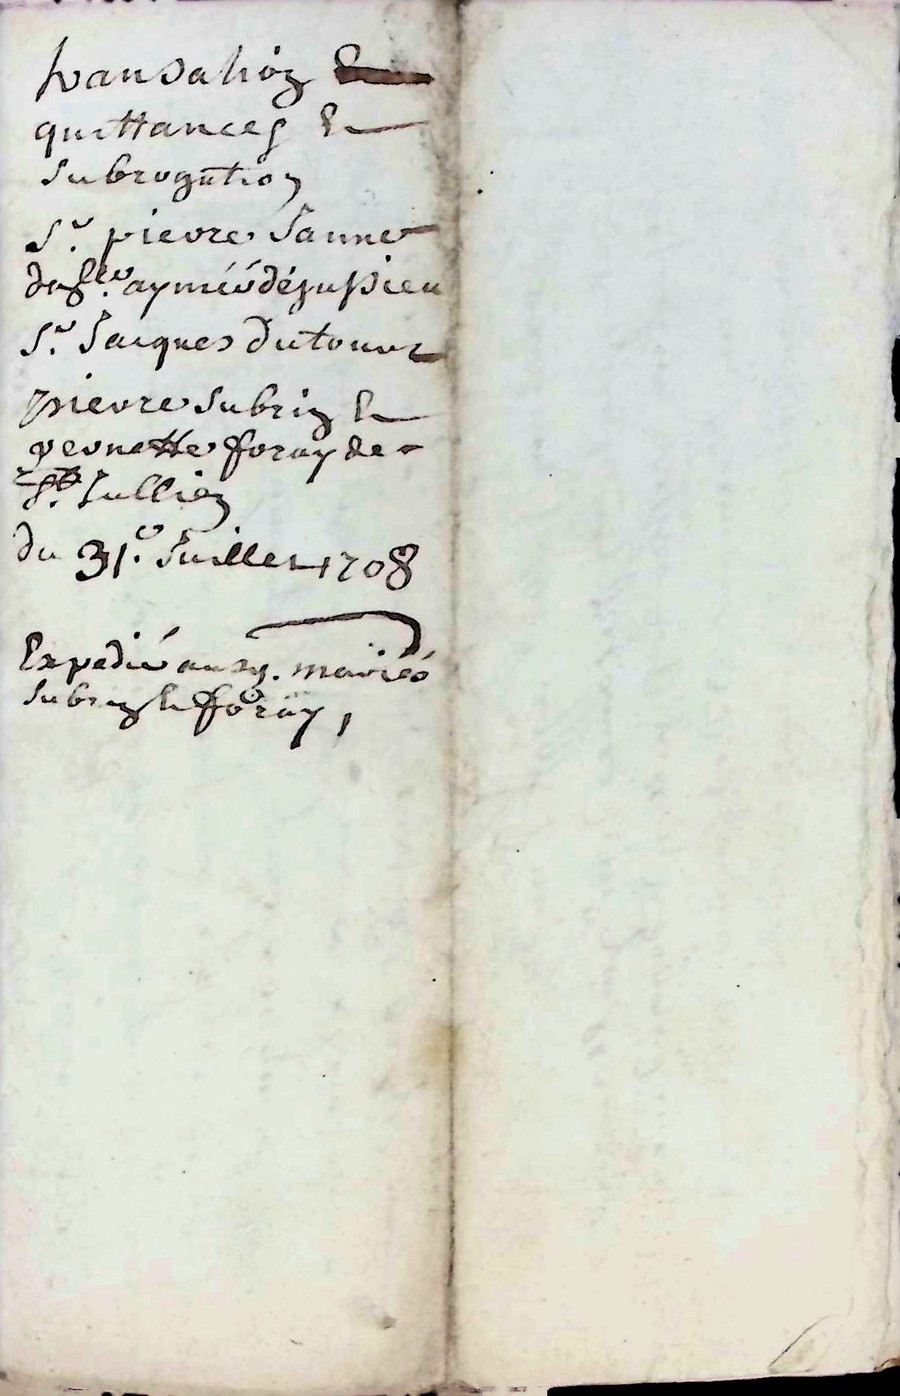 transaction Et
quittances Et
subrogation
Sr. pierre Janne
dslle. aymée déjussieu
Sr. Jacques dutour
pierre subrin Et
pernette foray de
St. Jullien
du 31e. Juillet 1708
Expedié ausd. mariés
subrin Et foray,